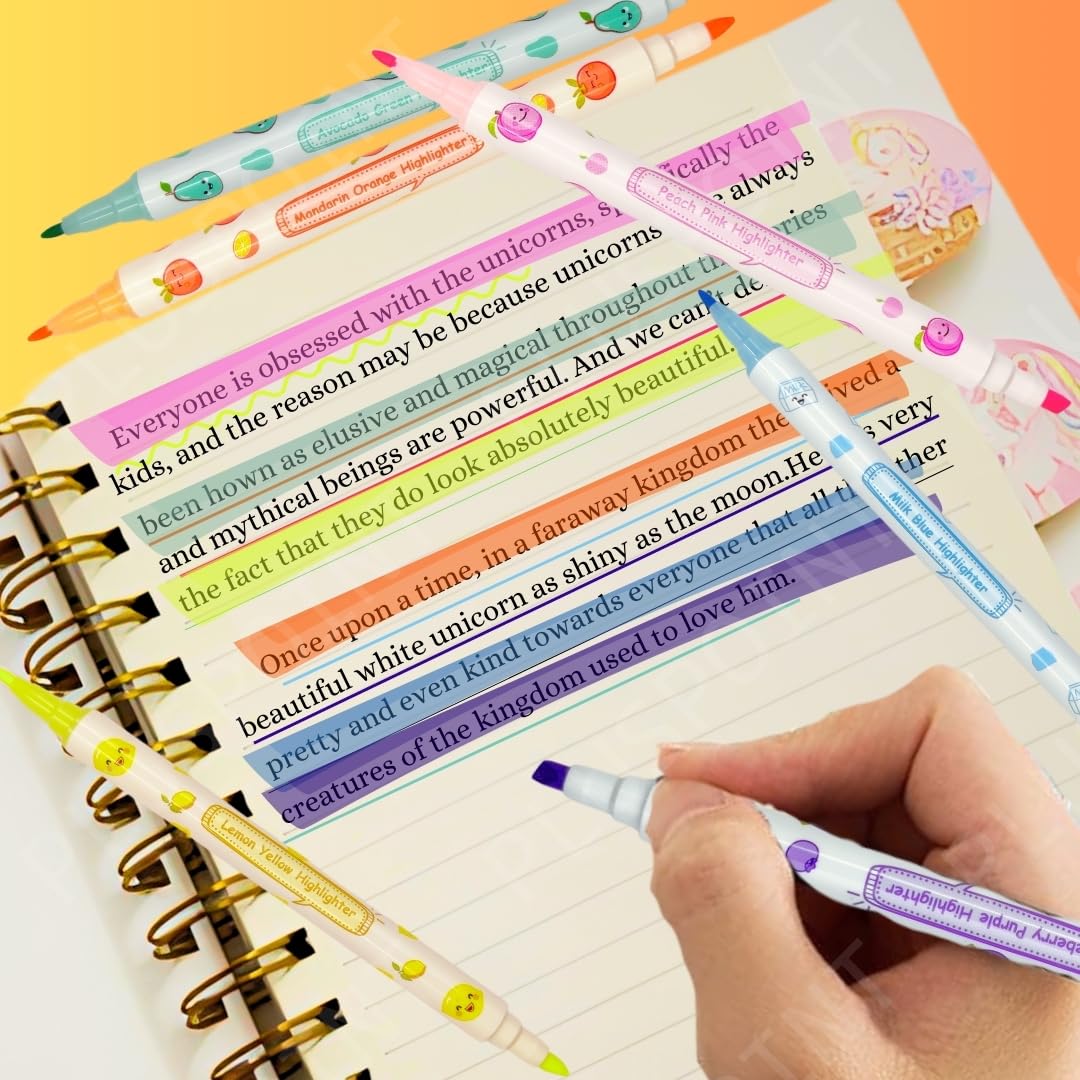 Avocado Green
Mandarin Orange Highlighter
Peach Pink Highlighter
Everyone is obsessed with the unicorns, the
kids, and the reason may be because unicorns always
been hown as elusive and magical throughout
and mythical beings are powerful. And we can't
the fact that they do look absolutely beautiful.
Once upon a time, in a faraway kingdom a
beautiful white unicorn as shiny as the moon.He very
pretty and even kind towards everyone that all
creatures of the kingdom used to love him.
Milk Blue Highlighter
Lemon Yellow Highlighter
Purple Highlighter